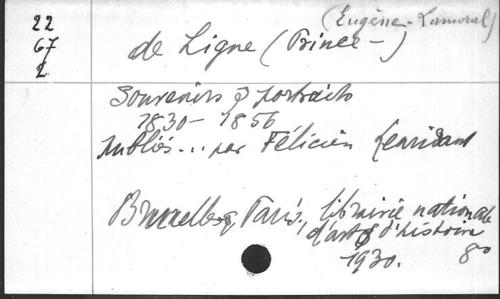 22
67
2
(Eugène-Lamoral)
de Ligne (Prince-)
Souvenirs & portraits
1830-1856
publiés... par Félicien Leuridant
Bruxelles, Paris, librairie nationale
d'art & d'histoire
1930. 8°